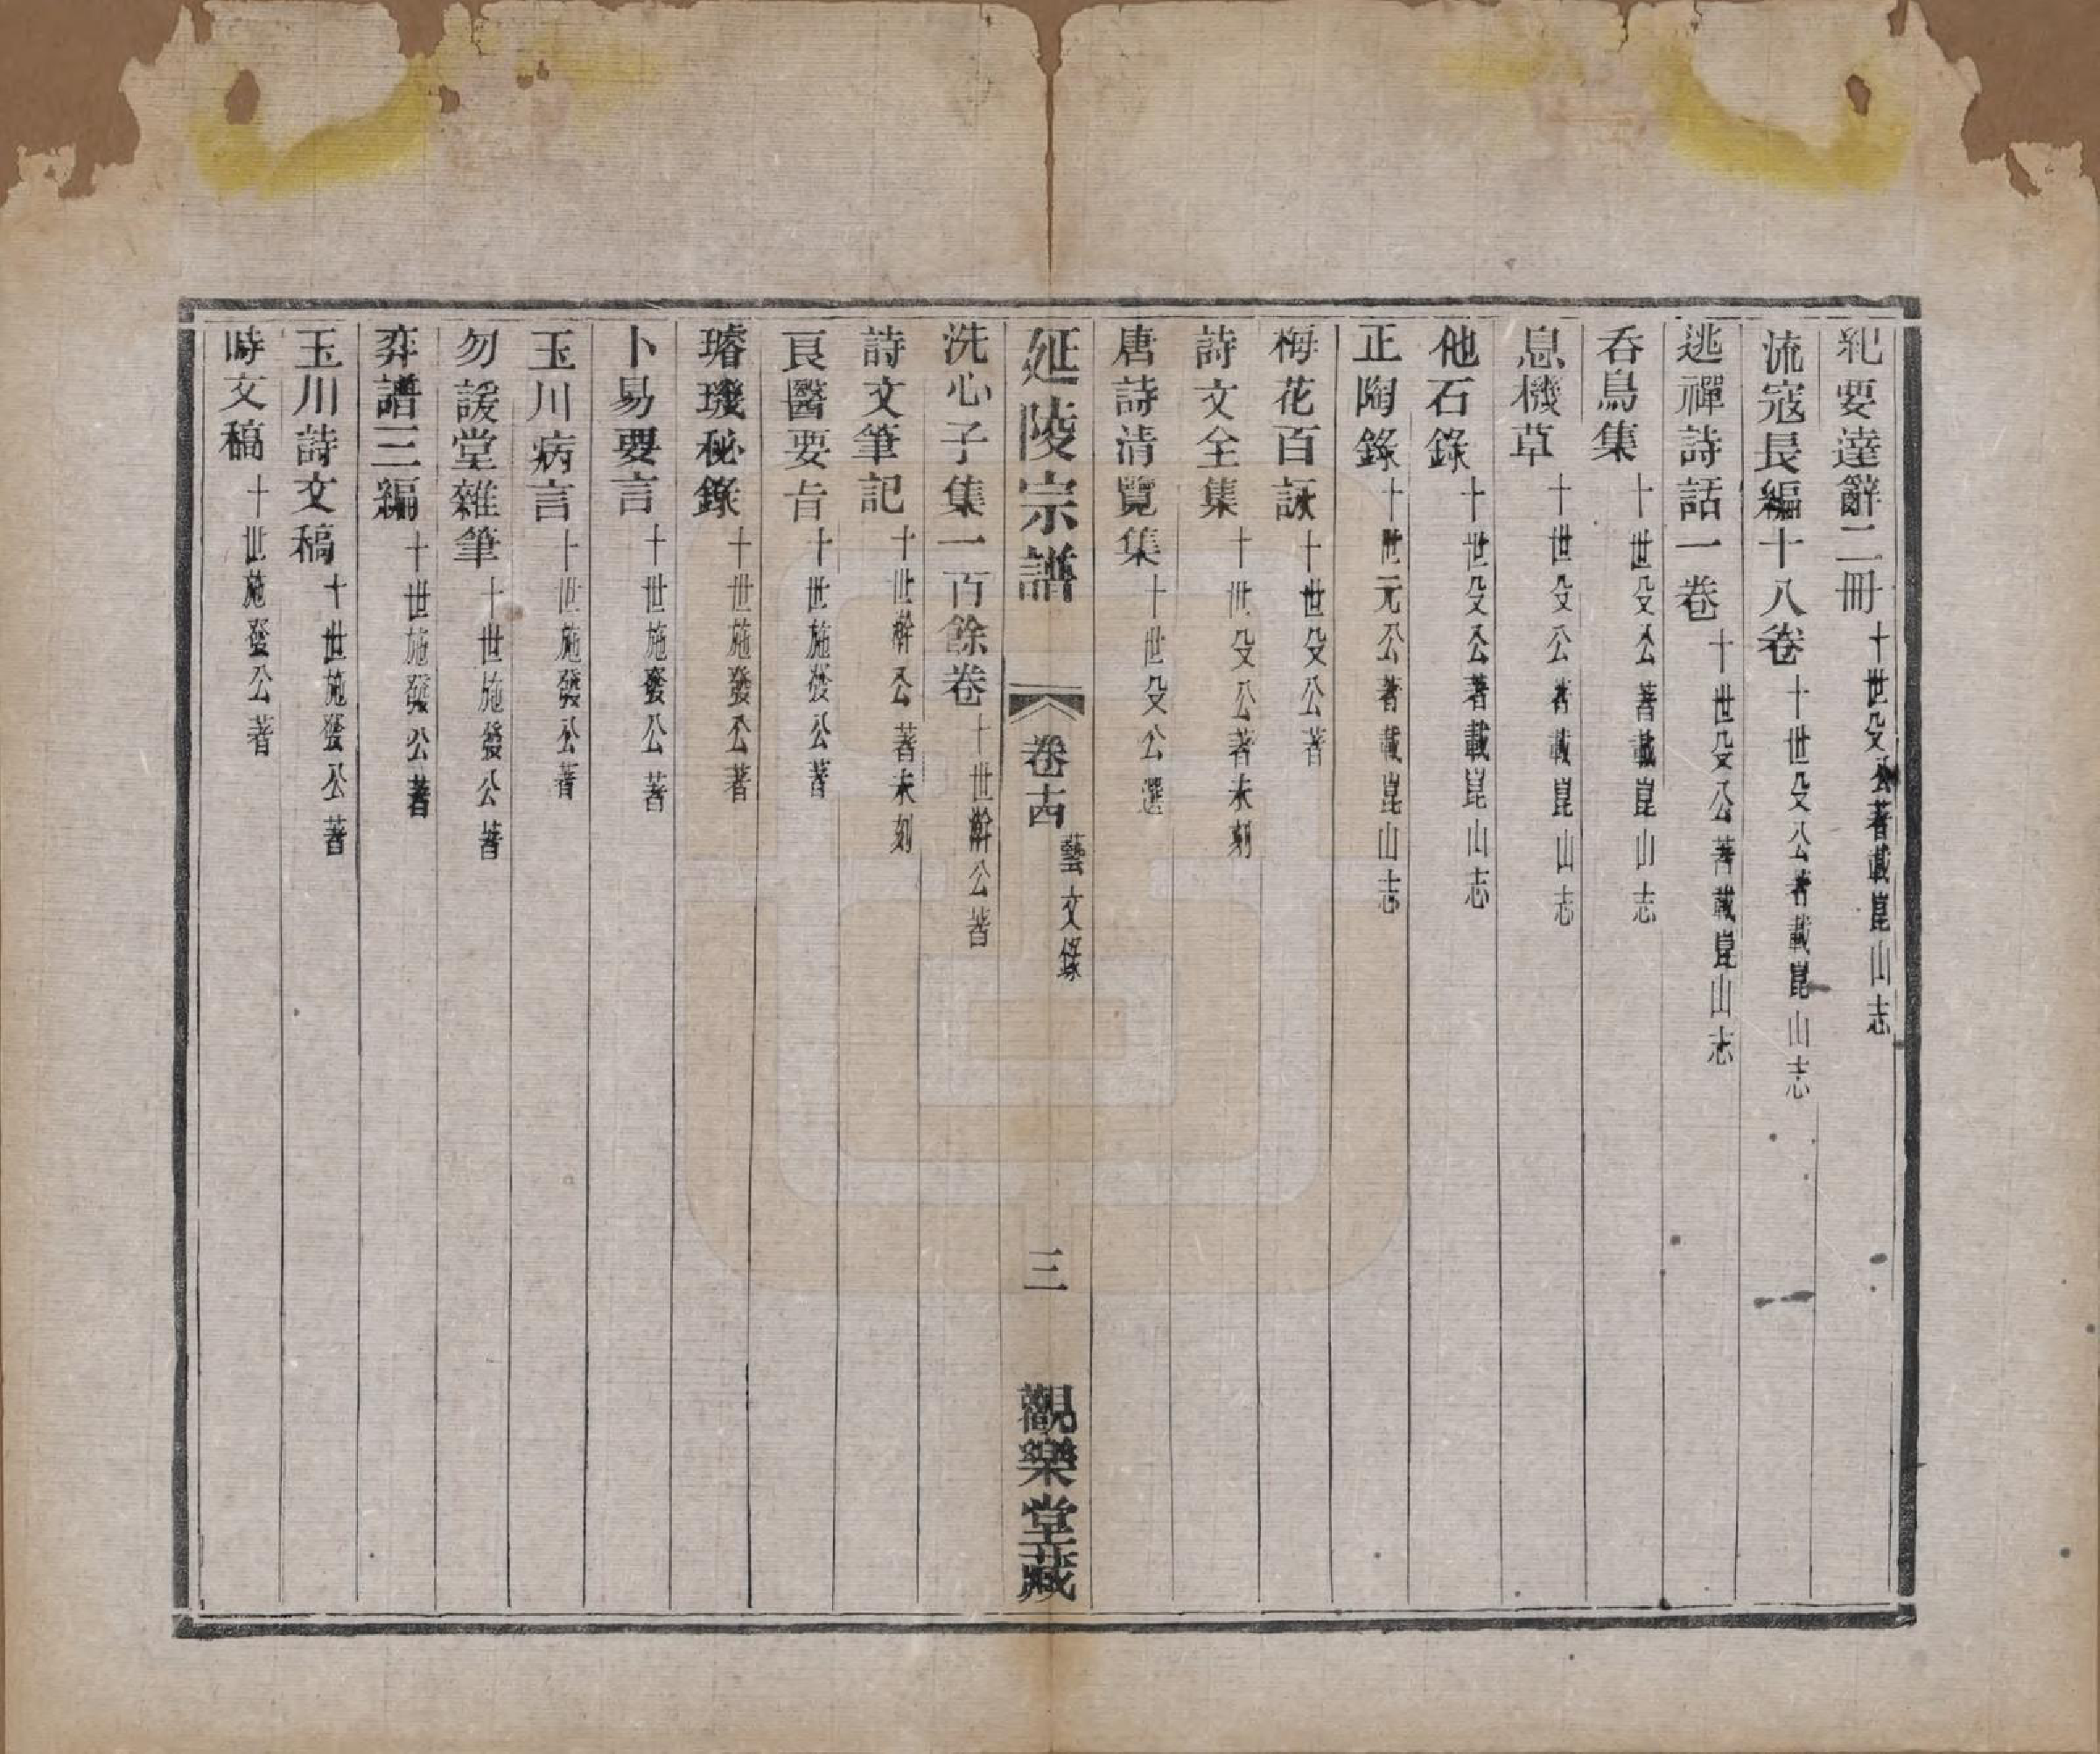 紀要達辭二冊 十世殳公著載崑山志
流寇長編十八卷 十世殳公著載崑山志
逃禪詩話一卷 十世殳公著載崑山志
呑鳥集 十世殳公著載崑山志
息機草 十世殳公著載崑山志
他石錄 十世殳公著載崑山志
正陶錄 十世元公著載崑山志
梅花百詠 十世殳公著
詩文全集 十世殳公著未刻
唐詩清覽集 十世殳公選
延陵宗譜 卷十四 藝文錄 三 觀樂堂藏
洗心子集一百餘卷 十世檊公著
詩文筆記 十世檊公著未刻
良醫要㫖 十世施發公著
璿璣秘錄 十世施發公著
卜易要言 十世施發公著
玉川病言 十世施發公著
勿諼堂雜筆 十世施發公著
弈譜三編 十世施發公著
玉川詩文稿 十世施發公著
時文稿 十世施發公著